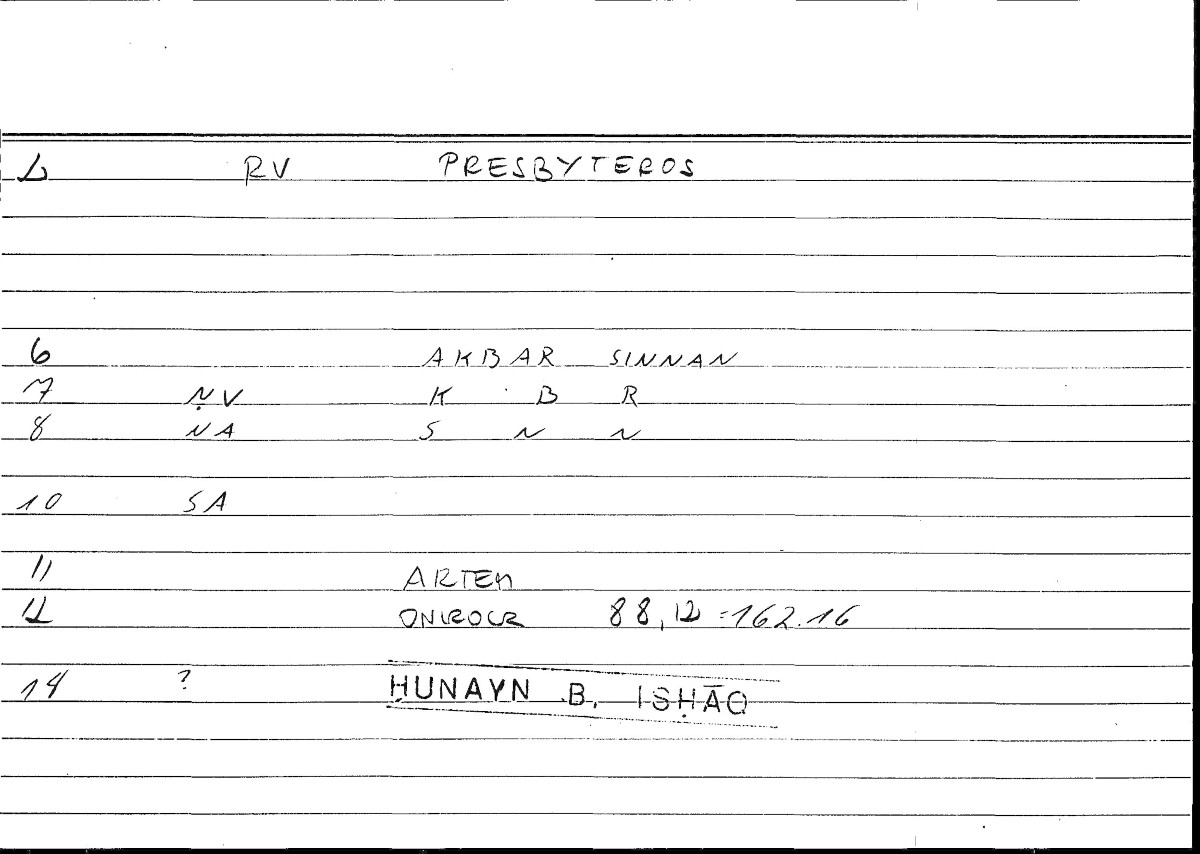 1 RV PRESBYTEROS
6 AKBAR SINNAN
7 ṆV K B R
8 NA S N N
10 SA
11 ARTEM
12 ONIROCR 88,12=162.16
14 ? ḤUNAYN B. ISḤĀQ